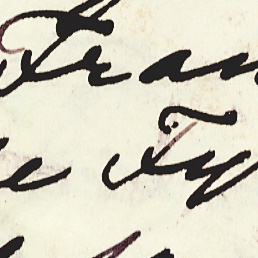 Fran
e Fy